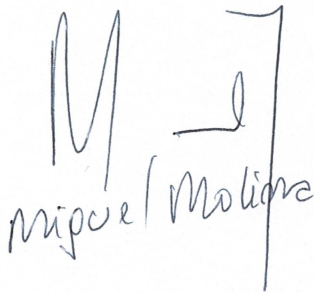 Miguel Molina